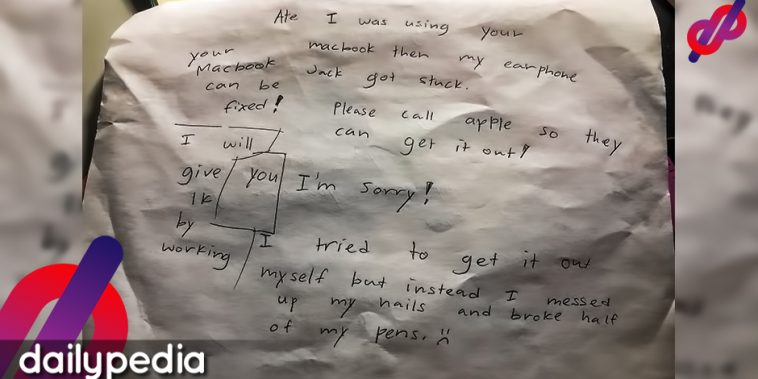 Ate I was using your
macbook then my earphone
Jack got stuck.
Please call apple so they
can get it out!
I'm sorry!
I tried to get it out
myself but instead I messed
up my nails and broke half
of my pens. :(
your
Macbook
can be
fixed!
I will
give you
1k
by
working
dailypedia